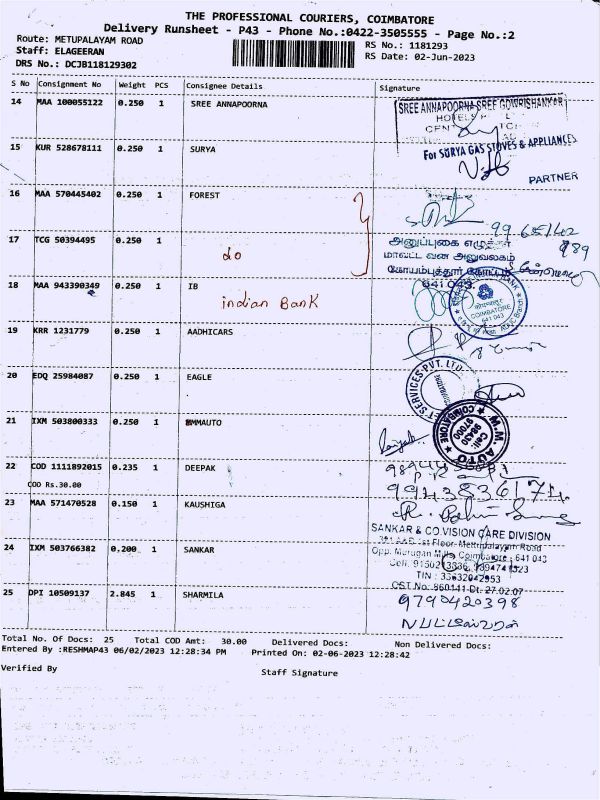 THE PROFESSIONAL COURIERS, COIMBATORE
Delivery Runsheet - P43 - Phone No.:0422-3505555 - Page No.:2
Route: METUPALAYAM ROAD
RS No.: 1181293
Staff: ELAGEERAN
RS Date: 02-Jun-2023
DRS No.: DCJB118129302
S No Consignment No Weight PCS Consignee Details Signature
14 MAA 100055122 0.250 1 SREE ANNAPOORNA
SREE ANNAPOORNA SREE GOWRISHANKAR
15 KUR 528678111 0.250 1 SURYA
For SURYA GAS STOVES & APPLIANCES
PARTNER
16 MAA 570445402 0.250 1 FOREST
17 TCG 50394495 0.250 1
do
அனுப்புகை எழுத்தர்
மாவட்ட வன அலுவலகம்
கோயம்புத்தூர் கோட்டம்
641 043.
18 MAA 943390349 0.250 1 IB
indian Bank
COIMBATORE
641 043
19 KRR 1231779 0.250 1 AADHICARS
20 EDQ 25984087 0.250 1 EAGLE
T SERVICES PVT. LTD.
21 IXM 503800333 0.250 1 MMAUTO
AUTO
COIMBATORE
Cell:
98430
97000
22 COD 1111892015 0.235 1 DEEPAK
COD Rs.30.00
9943836174
23 MAA 571470528 0.150 1 KAUSHIGA
24 IXM 503766382 0.200 1 SANKAR
SANKAR & CO.VISION CARE DIVISION
1st Floor, Mettupalayam Road
Opp. Murugan Mills, Coimbatore - 641 043
TIN : 33632042953
CST No: 860141 Dt: 27.02.07
25 DPI 10509137 2.845 1 SHARMILA
9790420398
Total No. Of Docs: 25 Total COD Amt: 30.00 Delivered Docs: Non Delivered Docs:
Entered By :RESHMAP43 06/02/2023 12:28:34 PM Printed On: 02-06-2023 12:28:42
Verified By
Staff Signature